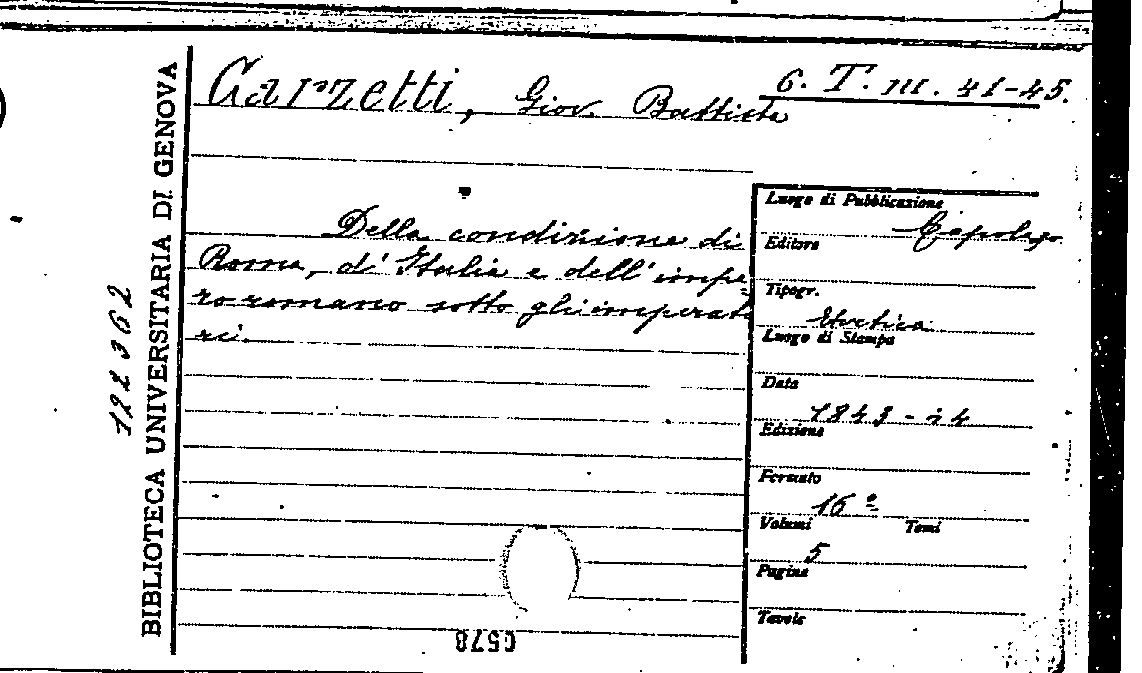 6. T. III. 41-45.
Garzetti, Giov. Battista
BIBLIOTECA UNIVERSITARIA DI GENOVA
122362
Della condizione di
Roma, d'Italia e dell'impe-
ro romano sotto gli imperato
ri.
Luogo di Pubblicazione
Capolago
Editore
Tipogr.
Elvetica
Luogo di Stampa
Data
1843-44
Edizione
Formato
16º
Volumi Tomi
5
Pagine
Tavole
0578